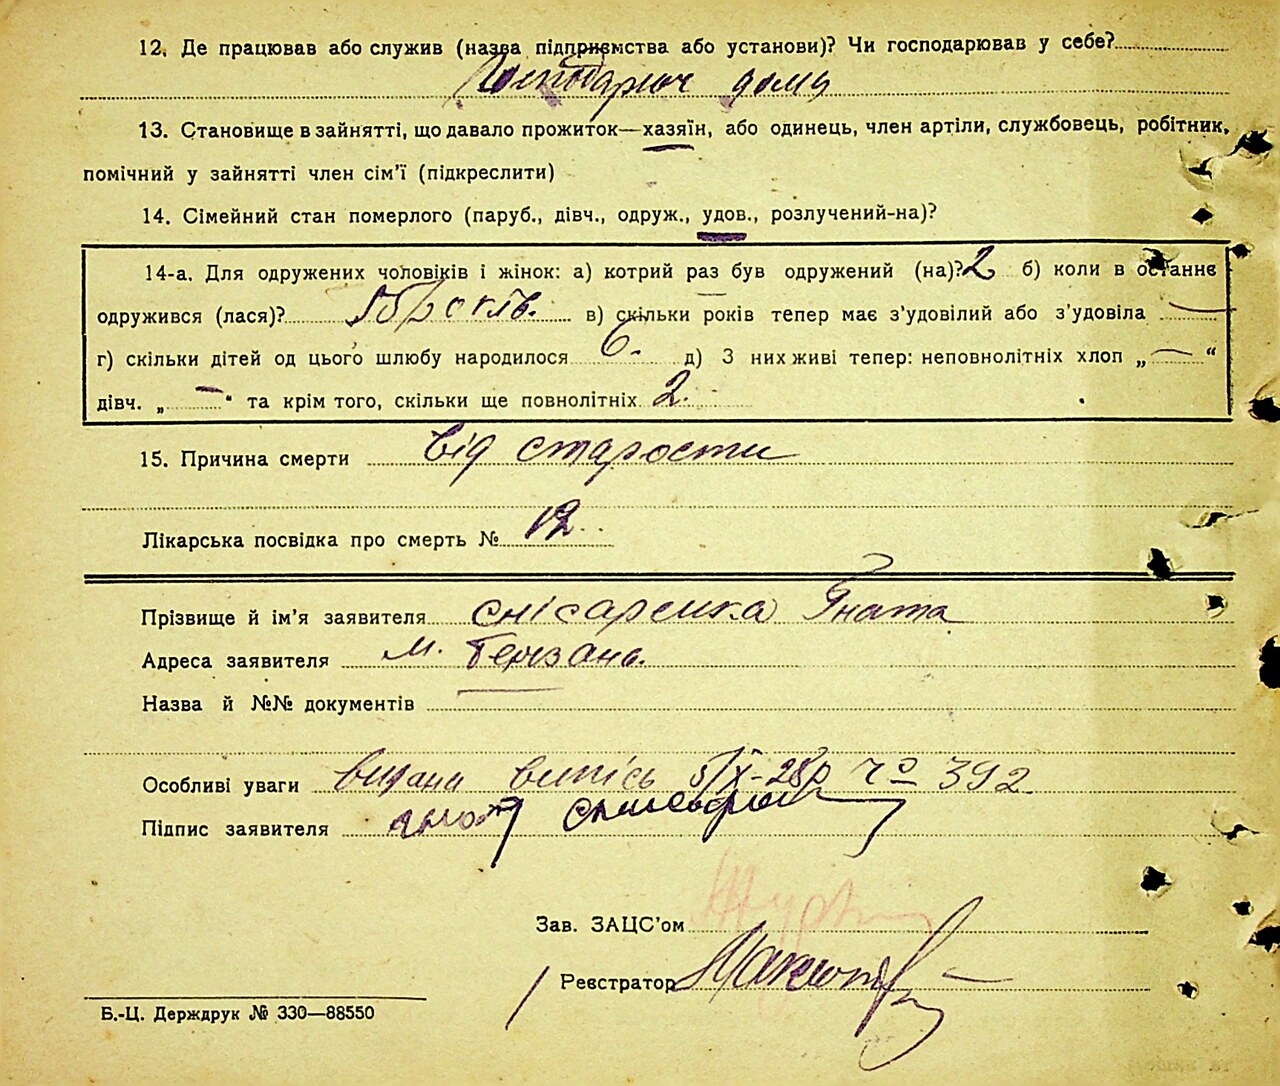 12. Де працював або служив (назва підприємства або установи)? Чи господарював у себе?
Господарює дома
13. Становище в зайнятті, що давало прожиток—хазяїн, або одинець, член артіли, службовець, робітник,
помічний у зайнятті член сім'ї (підкреслити)
14. Сімейний стан померлого (паруб., дівч., одруж., удов., розлучений-на)?
14-а. Для одружених чоловіків і жінок: а) котрий раз був одружений (на)? 2 б) коли в останнє
одружився (лася)? років. в) скільки років тепер має з'удовілий або з'удовіла —
г) скільки дітей од цього шлюбу народилося 6. д) З них живі тепер: неповнолітніх хлоп „—"
дівч. „—" та крім того, скільки ще повнолітніх 2.
15. Причина смерти від старости
Лікарська посвідка про смерть № 12.
Прізвище й ім'я заявителя Снісаренка Гната
Адреса заявителя м. Березань.
Назва й №№ документів
Особливі уваги видана випісь 5/X-28р 392.
Підпис заявителя
Зав. ЗАЦС'ом
Реєстратор
Б.-Ц. Держдрук № 330—88550